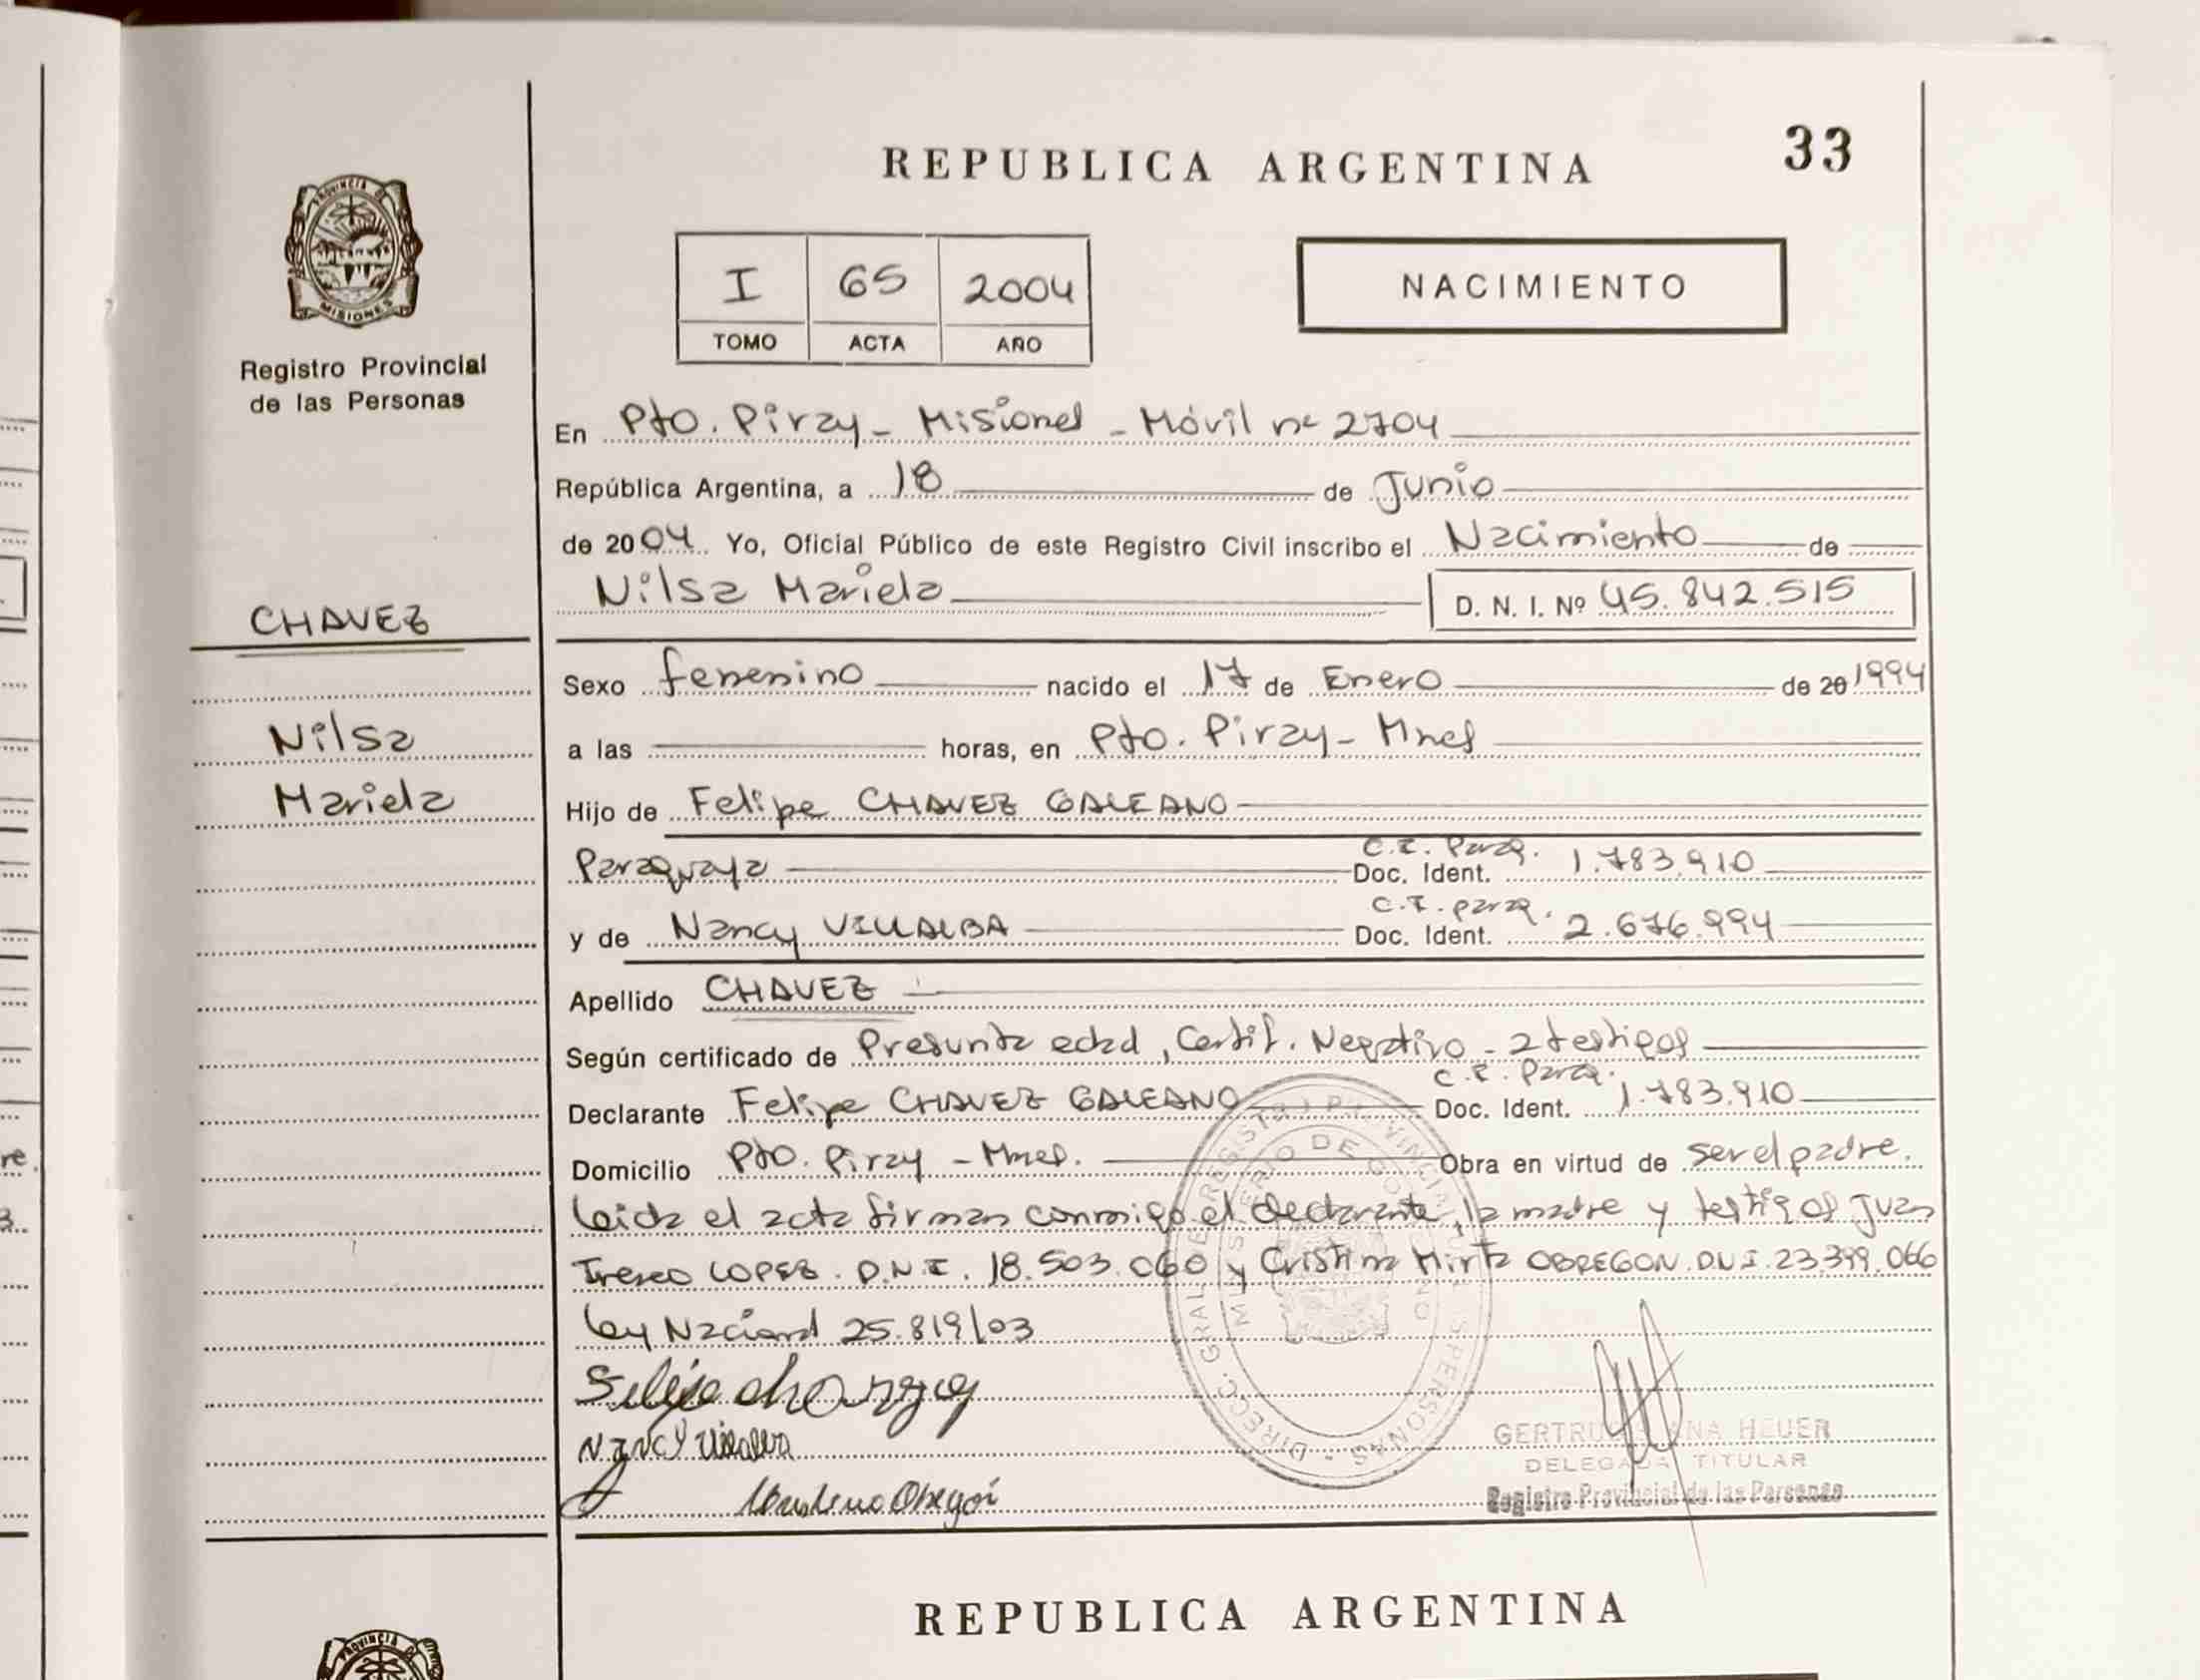 REPUBLICA ARGENTINA
33
PROVINCIA DE
MISIONES
Registro Provincial
de las Personas
I 65 2004
TOMO ACTA AÑO
NACIMIENTO
En Pto. Piray - Misiones - Móvil nº 2704
República Argentina, a 18 de Junio
de 2004 Yo, Oficial Público de este Registro Civil inscribo el Nacimiento de
Nilsa Mariela D. N. I. Nº 45.842.515
CHAVEZ
Nilsa
Mariela
Sexo femenino nacido el 17 de Enero de 20 1994
a las horas, en Pto. Piray - Mnes
Hijo de Felipe CHAVEZ GALEANO
Paraguaya Doc. Ident. C.I. Parag. 1.783.910
y de Nancy VILLALBA Doc. Ident. C.I. parag. 2.676.994
Apellido CHAVEZ
Según certificado de Presunta edad, Certif. Negativo - 2 testigos
Declarante Felipe CHAVEZ GALEANO Doc. Ident. C.I. Parag. 1.783.910
Domicilio Pto. Piray - Mnes. Obra en virtud de ser el padre.
Leida el acta firman conmigo el declarante, la madre y testigos Juan
Ireneo LOPEZ. D.N.I. 18.503.060 y Cristina Mirta OBREGON. D.N.I. 23.399.066
Ley Nacional 25.819/03
Nancy Villalba
GERTRU ANA HEUER
DELEGADA TITULAR
Registro Provincial de las Personas
REPUBLICA ARGENTINA
PROVINCIA DE